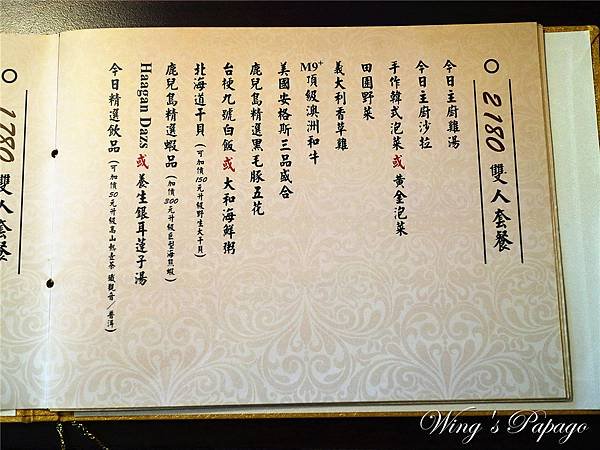 2180 雙人套餐
今日主廚雞湯
今日主廚沙拉
手作韓式泡菜或黃金泡菜
田園野菜
義大利香草雞
M9+頂級澳洲和牛
美國安格斯三品盛合
鹿兒島精選黑毛豚五花
台梗九號白飯或大和海鮮粥
北海道干貝(可加價150元升級野生大干貝)
鹿兒島精選蝦品(加價300元升級巨型海熊蝦)
Haagan Dazs或養生銀耳蓮子湯
今日精選飲品(可加價50元升級高山熱壺茶 鐵觀音/普洱)
1780 雙人套餐
Wing's Papago